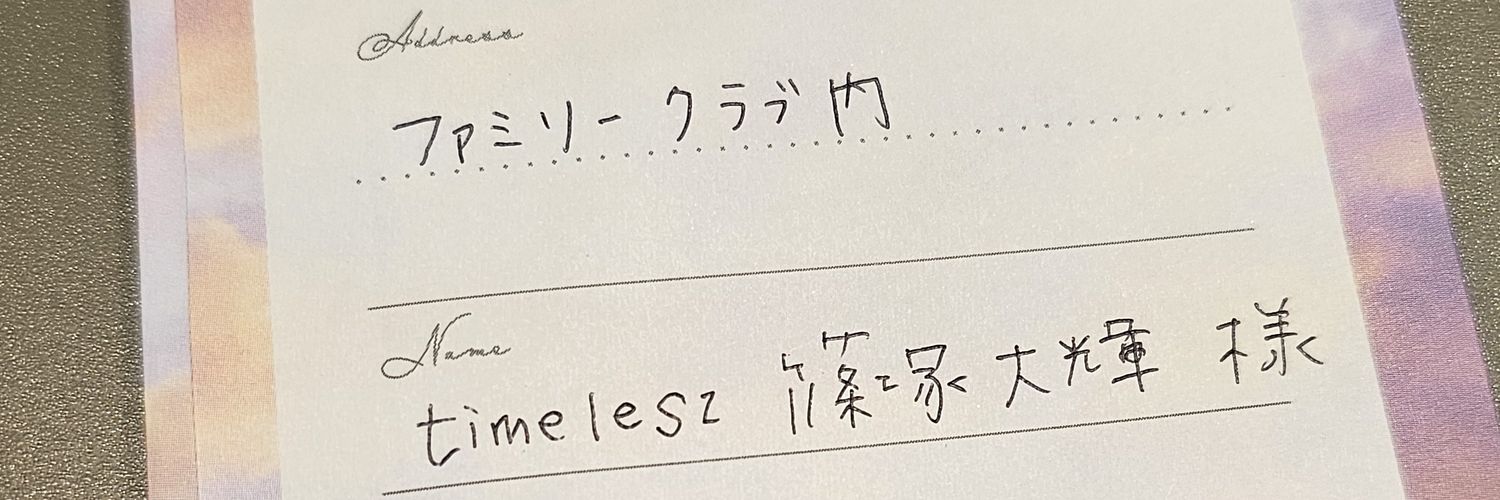 Address
ファミリークラブ内
Name
timelesz 篠塚大輝 様